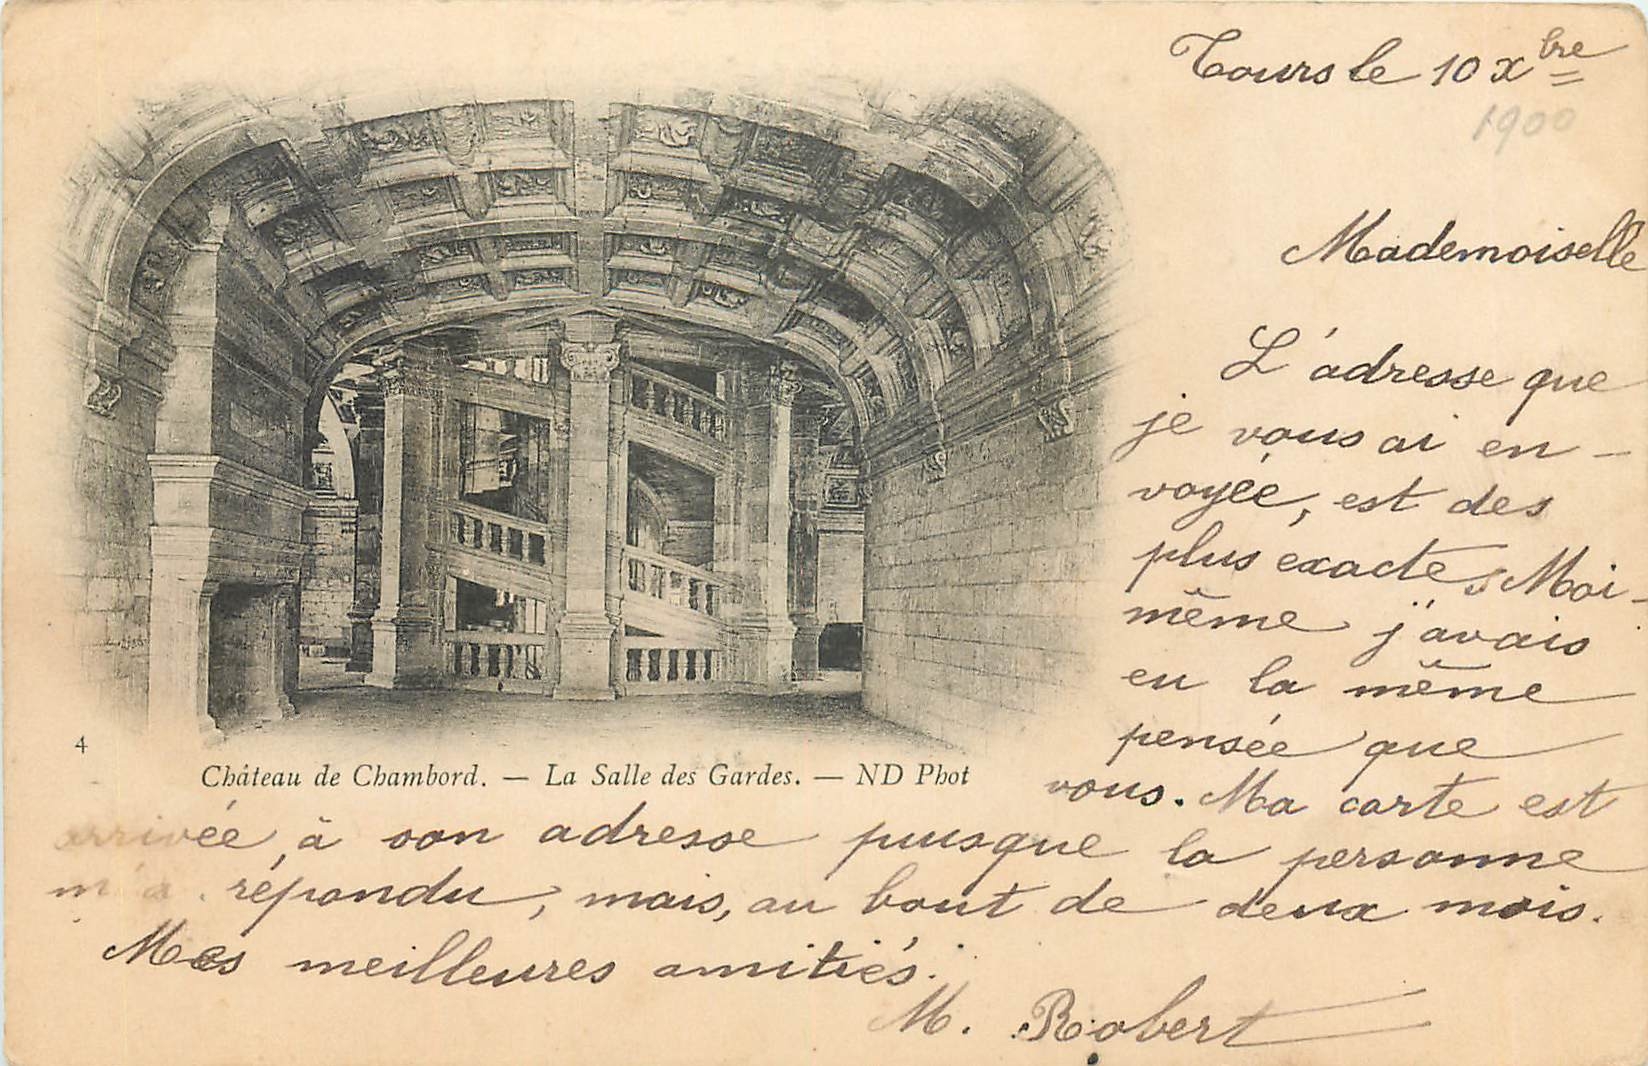 Tours le 10 Xbre
1900
Mademoiselle
L'adresse que
je vous ai en-
voyée, est des
plus exactes. Moi-
même j'avais
eu la même
pensée que
vous. Ma carte est
arrivée, à son adresse puisque la personne
m'a répondu, mais, au bout de deux mois.
Mes meilleures amitiés.
M. Robert
4
Château de Chambord. — La Salle des Gardes. — ND Phot